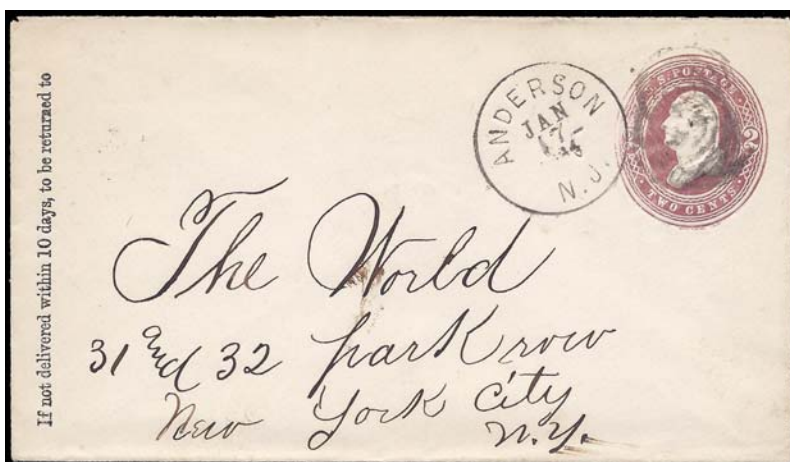 If not delivered within 10 days, to be returned to
ANDERSON
JAN
17
N.J.
U.S. POSTAGE
2
TWO CENTS
The World
31 and 32 park row
New York City
N.Y.